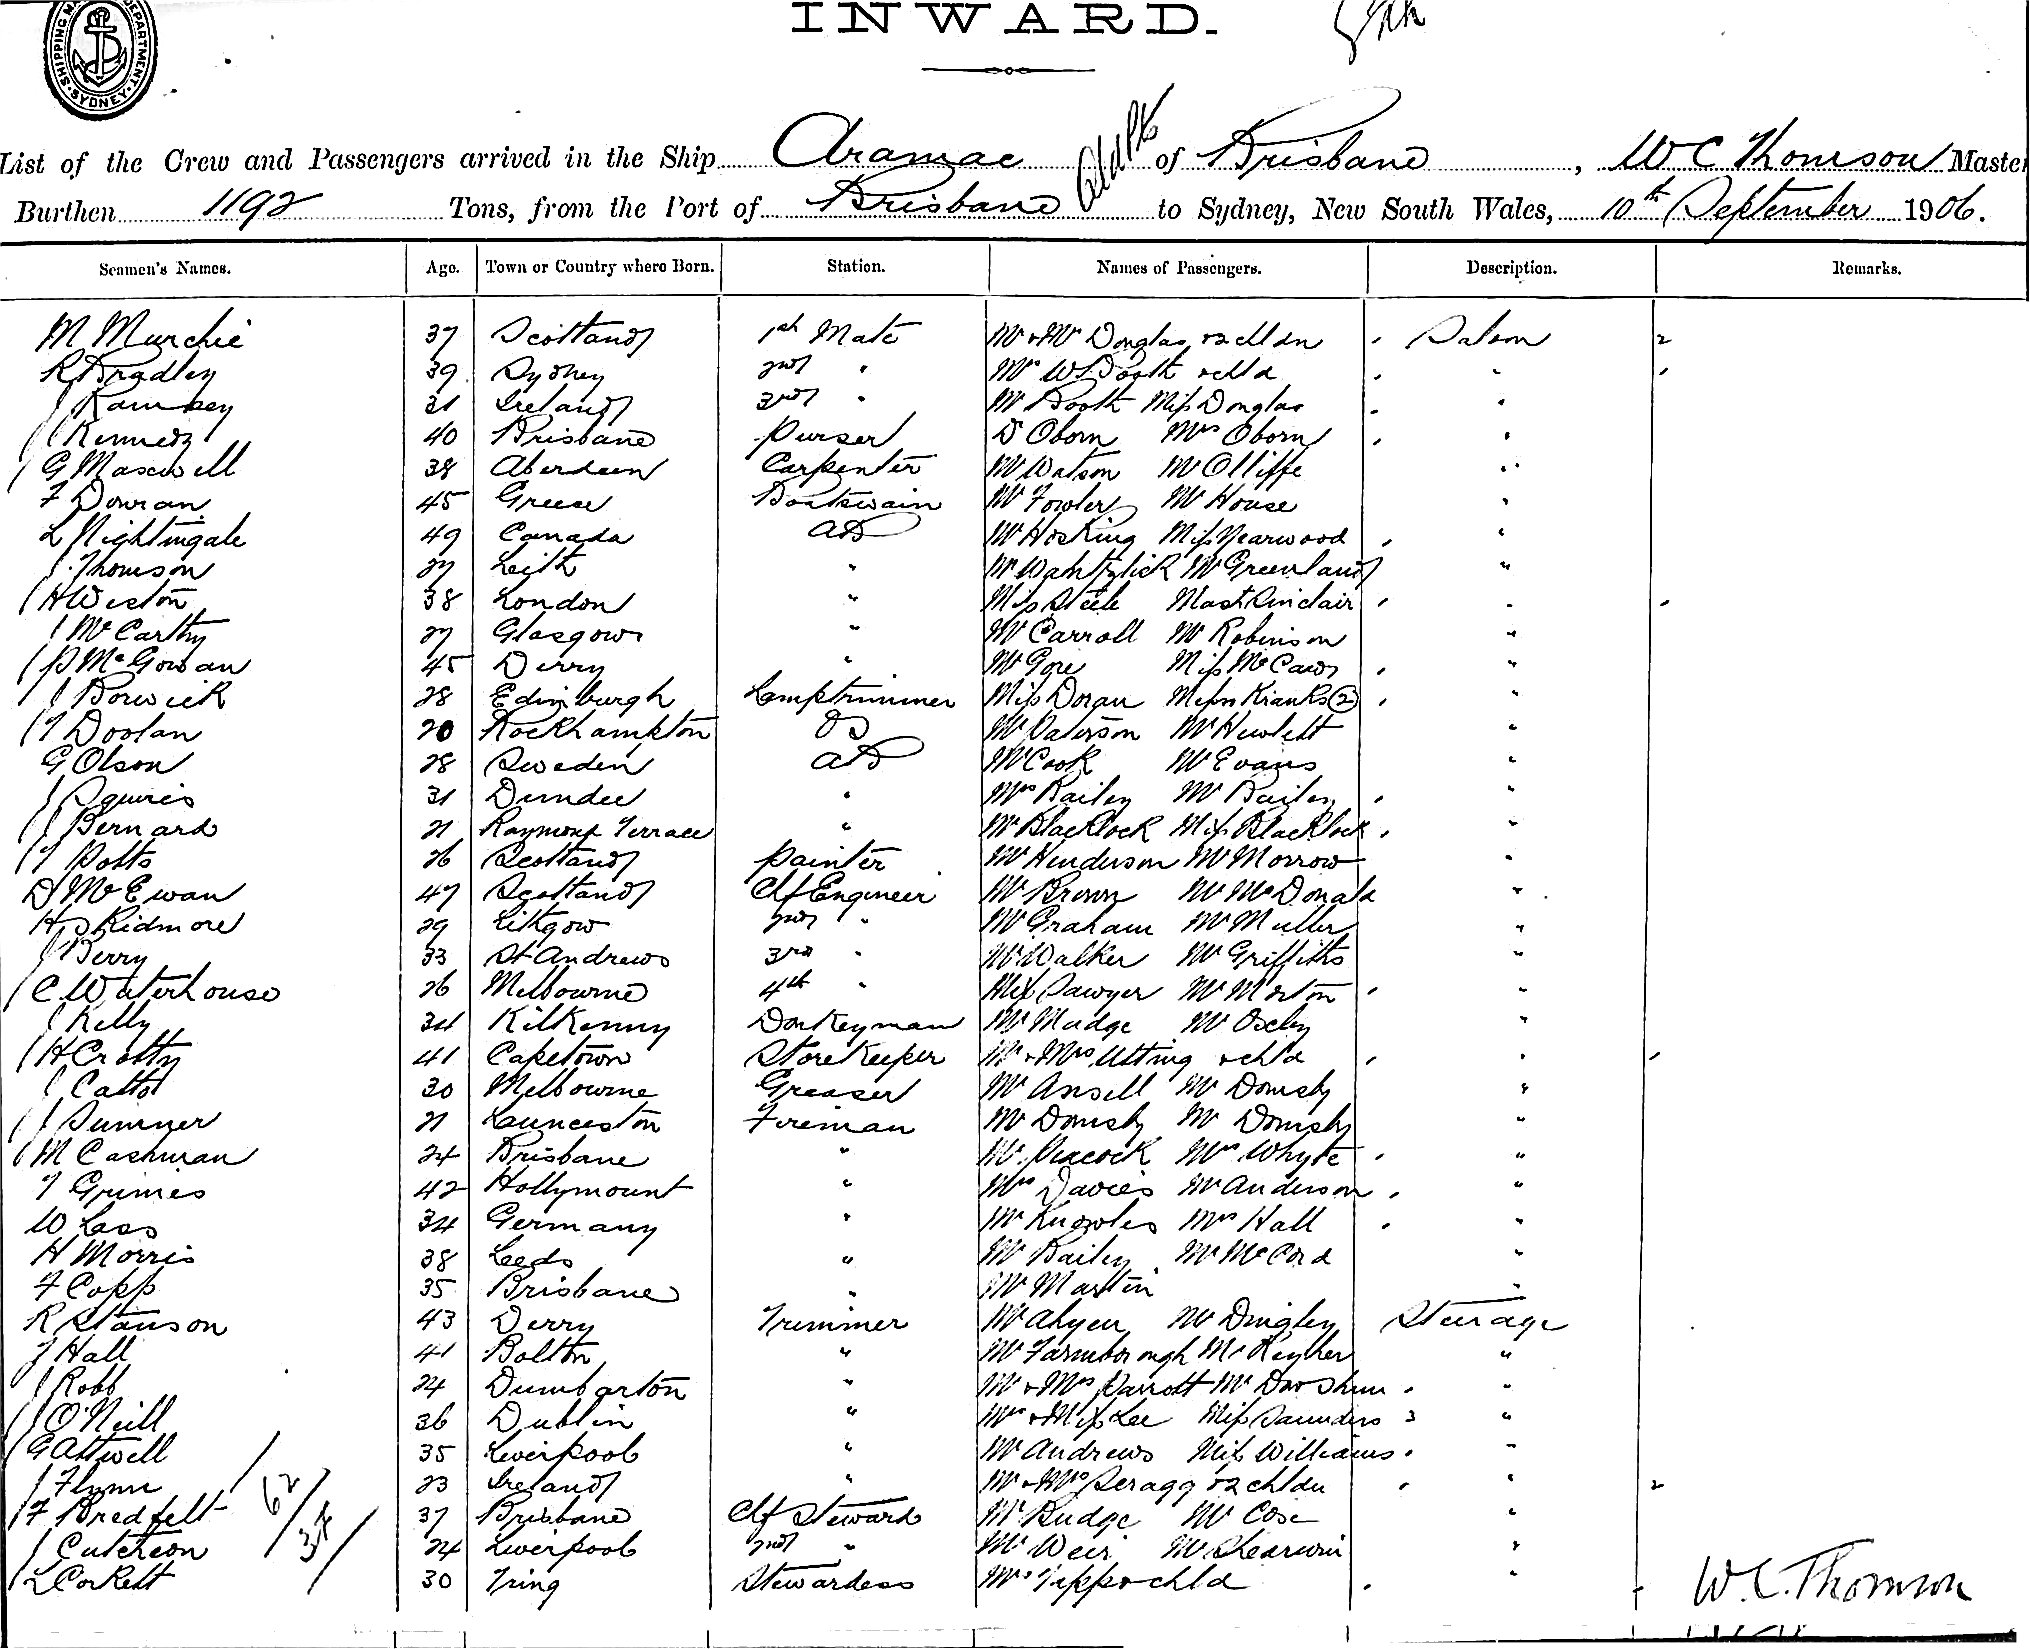 SHIPPING MASTER'S DEPARTMENT SYDNEY
INWARD.
List of the Crew and Passengers arrived in the Ship Aramac of Brisbane, W C Thomson Master
Burthen 1192 Tons, from the Port of Brisbane to Sydney, New South Wales, 10th September 1906.
Seamen's Names. Age. Town or Country where Born. Station. Names of Passengers. Description. Remarks.
M Murchie 37 Scotland 1st Mate Mr & Mrs Douglas & 2 chldn Saloon 2
R Bradley 39 Sydney 2nd " Mrs Booth & chld "
J Ramsey 31 Ireland 3rd " Mr Booth Miss Douglas "
J Kennedy 40 Brisbane Purser D Oborn Mrs Oborn "
G Maxwell 38 Aberdeen Carpenter Mr Watson Mr Olliffe "
F Dowran 45 Greece Boatswain Mr Fowler Mr House "
L Nightingale 49 Canada AB Mr Hosking Miss Yearwood "
J Thomson 27 Leith " Mr Mr Greenland "
H Weston 38 London " Miss Steele Mast Sinclair "
J McCarthy 27 Glasgow " Mr Carroll Mr Robinson "
P McGowan 45 Derry " Mr Gore Miss McCaw "
J Borwick 28 Edinburgh Lamptrimmer Miss Doran Misses Kranks (2) "
T Doolan 20 Rockhampton OS Mr Paterson Mr Hewlett "
G Olson 28 Sweden AB Mr Cook Mr Evans "
J Squires 31 Dundee " Mrs Bailey Mr Bailey "
J Bernard 21 Raymond Terrace " Mr Blacklock Miss Blacklock "
T Potts 26 Scotland Painter Mr Henderson Mr Morrow "
D McEwan 47 Scotland Chf Engineer Mr Brown Mr McDonald "
H Skidmore 29 Lithgow 2nd " Mr Graham Mr Muller "
J Berry 33 St Andrews 3rd " Mr Walker Mr Griffiths "
C Waterhouse 26 Melbourne 4th " Miss Sawyer Mr Morton "
J Kelly 34 Kilkenny Donkeyman Mr Mudge Mr Oxley "
H Crotty 41 Capetown Storekeeper Mr & Mrs Utting & chld "
J Cattol 30 Melbourne Greaser Mr Ansell Mr Domsby "
J Sumner 21 Launceston Fireman Mr Domsby Mr Domsby "
M Cashman 24 Brisbane " Mr Peacock Mrs Whyte "
T Grimes 42 Hollymount " Mrs Davies Mr Anderson "
W Lass 34 Germany " Mr Knowles Mrs Hall "
H Morris 38 Leeds " Mr Bailey Mr McCord "
F Copp 35 Brisbane " Mr Martin "
R Stanson 43 Derry Trimmer Mr Ahyen Mr Dingley Steerage
J Hall 41 Bolton " Mr Farmborough Mr Keyher "
J Robb 24 Dumbarton " Mr & Mrs Parrott Mr "
J O'Neill 36 Dublin " Mrs & Miss Lee Miss Saunders "
G Attwell 35 Liverpool " Mr Andrews Miss Williams "
J Flynn 23 Ireland " Mr & Mrs Scragg & 2 chldn " 2
F Bredfelt 37 Brisbane Chf Steward Mr Budge Mr Cose "
J Cutcheon 24 Liverpool 2nd " Mr Weir Mr Shearwin "
L Corkett 30 Tring Stewardess Mrs Tipp & chld "
62
38
W.C. Thomson